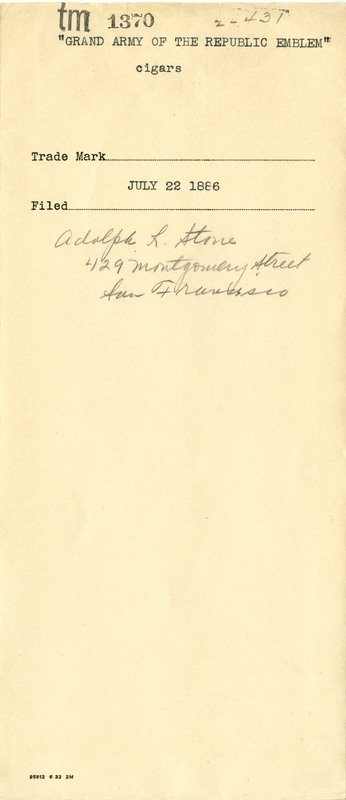 tm 1370 2-431
"GRAND ARMY OF THE REPUBLIC EMBLEM"
cigars
Trade Mark
JULY 22 1886
Filed
Adolph L. Stone
429 Montgomery Street
San Francisco
95812 6-32 2M